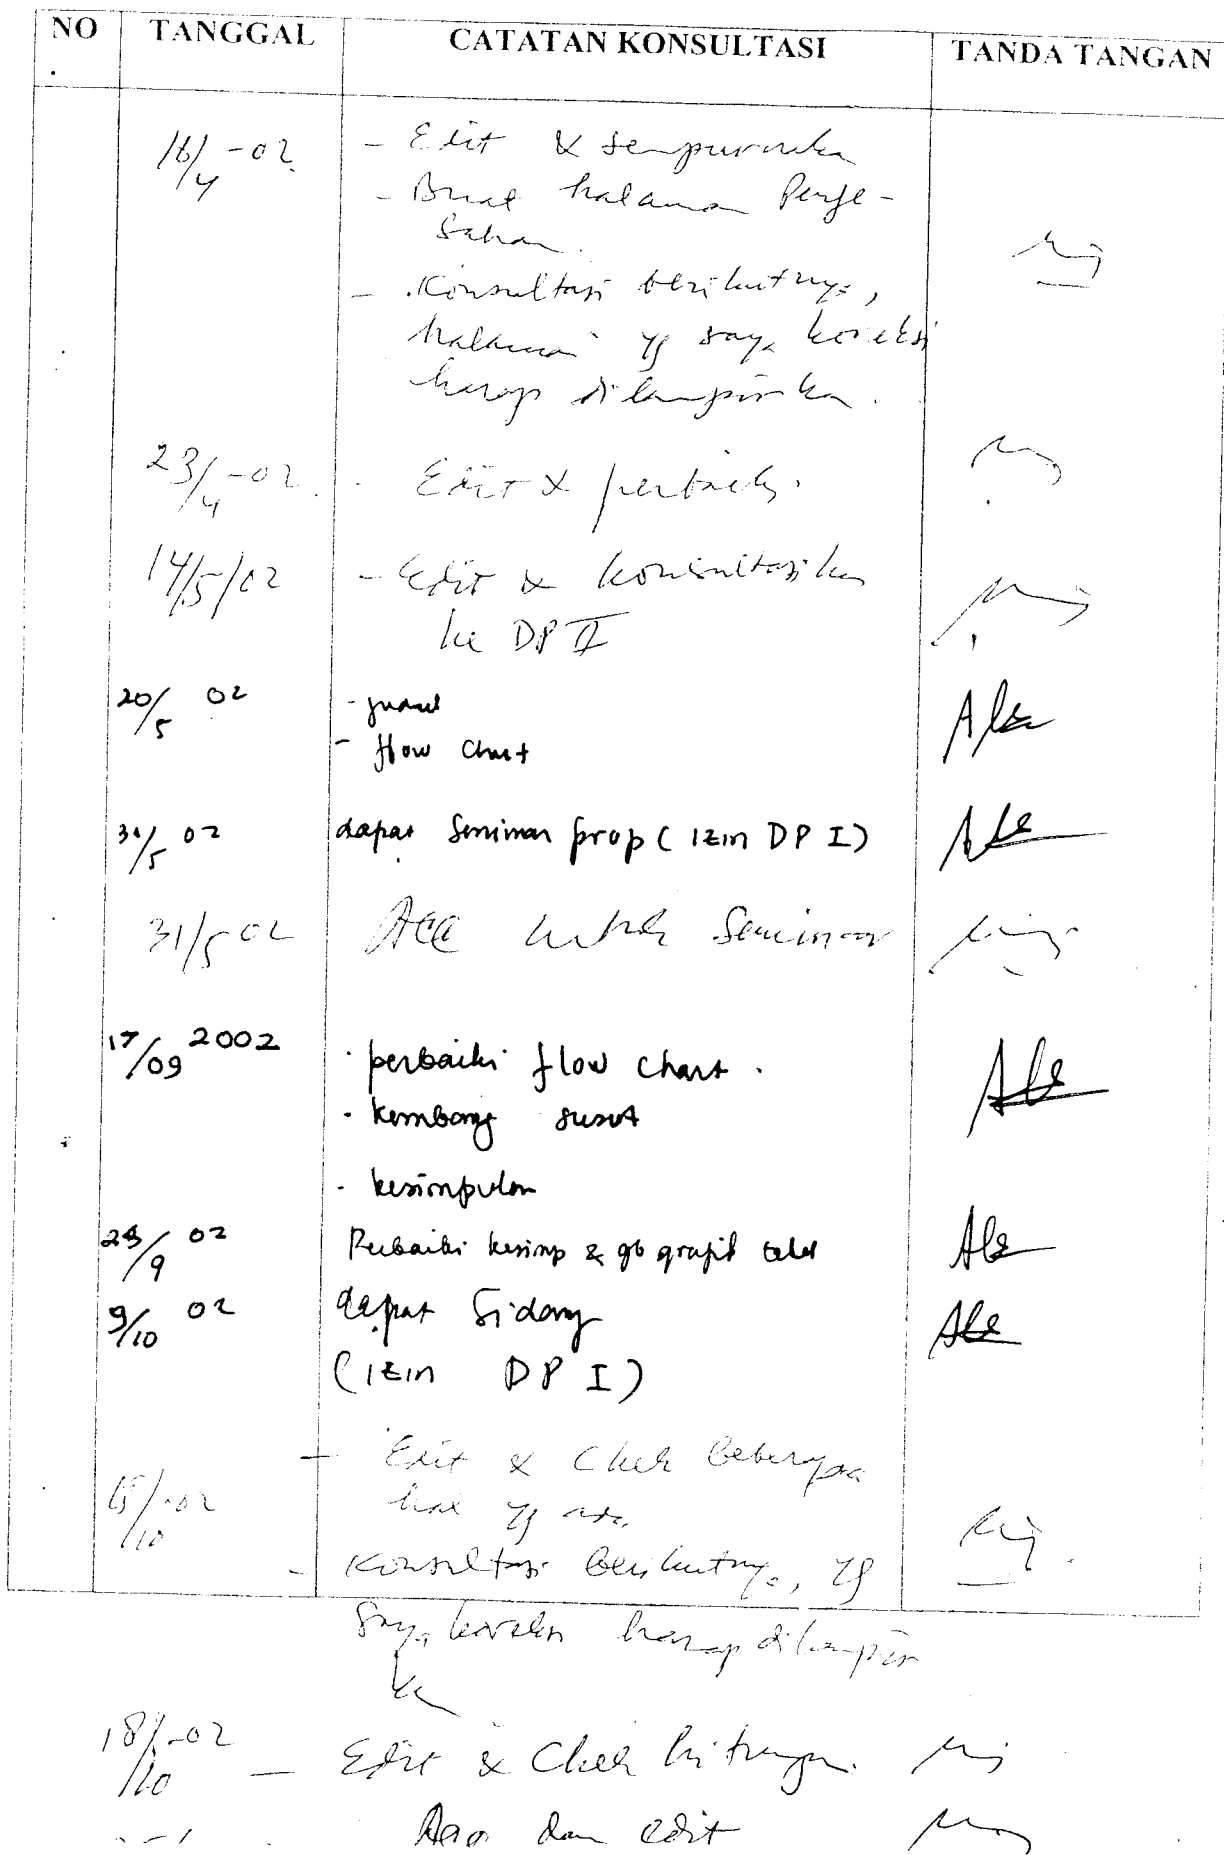 NO TANGGAL CATATAN KONSULTASI TANDA TANGAN
16/4-02 - Edit & sempurnaka
- Buat halaman Penge-
sahan.
- Konsultasi berikutnya,
halaman yg saya koreksi
harap dilampirkan.
23/4-02. - Edit & perbaiki.
14/5/02 - Edit & konsultasikan
ke DP II
20/5 02 - judul
- flow chart
31/5 02 dapat Seminar prop (izin DP I)
31/5 02 Acc untuk Seminar
17/09 2002 - perbaiki flow chart.
- kembang susut
- kesimpulan
/9 02 Perbaiki kesimp & gb grafik
9/10 02 dapat Sidang
(izin DP I)
- Edit & Chek beberapa
15/10-02 hal yg ada
- Konsultasi berikutnya, yg
saya koreksi harap dilampir
kan
18/10-02 - Edit & Chek hitungan.
dan edit